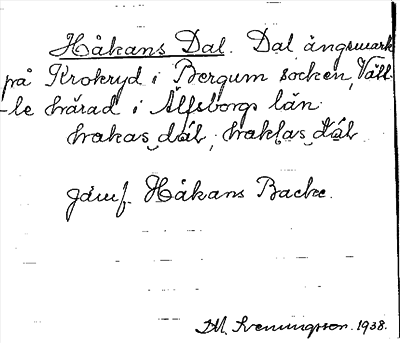 Håkans Dal. Dal ängsmark
på Krokryd i Bergum socken, Vätt-
-le härad i Älfsborgs län.
hakas dál, haklas dál
jämf. Håkans Backe.
Svenungsson. 1938.